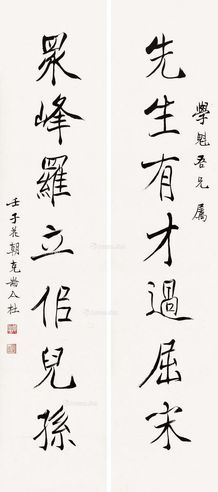 學魁吾兄屬
先生有才過屈宋
眾峰羅立佀兒孫
壬子花朝克耑